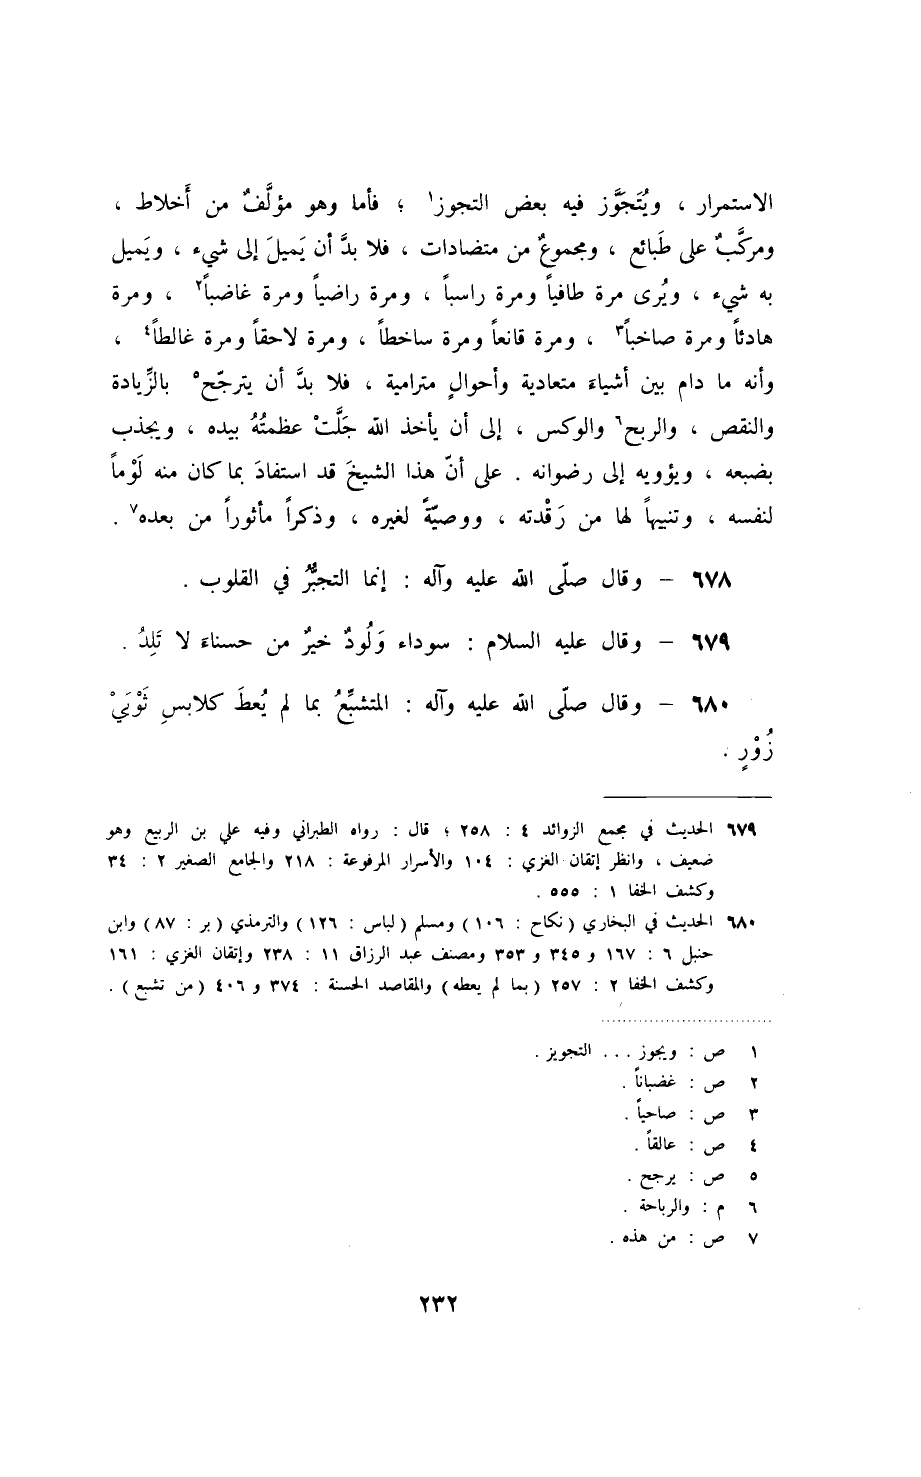 الاستمرار ، ويُتَجَوَّز فيه بعض التجوز١ ؛ فأما وهو مؤلَّفٌ من أَخلاط ،
ومركَّبٌ على طَبائع ، ومجموعٌ من متضادات ، فلا بدَّ أن يَميلَ إلى شيء ، ويَميل
به شيء ، ويُرى مرة طافياً ومرة راسباً ، ومرة راضياً ومرة غاضباً٢ ، ومرة
هادئاً ومرة صاخباً٣ ، ومرة قانعاً ومرة ساخطاً ، ومرة لاحقاً ومرة غالطاً٤ ،
وأنه ما دام بين أشياءَ متعادية وأحوالٍ مترامية ، فلا بدَّ أن يترجّح٥ بالزِّيادة
والنقص ، والربح٦ والوكس ، إلى أن يأخذ الله جَلَّتْ عظمتُهُ بيده ، ويجذب
بضبعه ، ويؤويه إلى رضوانه . على أنّ هذا الشيخَ قد استفادَ بما كان منه لَوْماً
لنفسه ، وتنبيهاً لها من رَقْدته ، ووصيّةً لغيره ، وذكراً مأثوراً من بعده٧ .
٦٧٨ – وقال صلّى الله عليه وآله : إنما التجبُّرُ في القلوب .
٦٧٩ – وقال عليه السلام : سوداء وَلُودٌ خيرٌ من حسناءَ لا تَلِدُ .
٦٨٠ – وقال صلّى الله عليه وآله : المتشبِّعُ بما لم يُعطَ كلابسِ ثَوْبَيْ
زُوْرٍ .
٦٧٩ الحديث في مجمع الزوائد ٤ : ٢٥٨ ؛ قال : رواه الطبراني وفيه علي بن الربيع وهو
ضعيف ، وانظر إتقان الغزي : ١٠٤ والأسرار المرفوعة : ٢١٨ والجامع الصغير ٢ : ٣٤
وكشف الخفا ١ : ٥٥٥ .
٦٨٠ الحديث في البخاري (نكاح : ١٠٦) ومسلم (لباس : ١٢٦) والترمذي (بر : ٨٧) وابن
حنبل ٦ : ١٦٧ و ٣٤٥ و ٣٥٣ ومصنف عبد الرزاق ١١ : ٢٣٨ وإتقان الغزي : ١٦١
وكشف الخفا ٢ : ٢٥٧ (بما لم يعطه) والمقاصد الحسنة : ٣٧٤ و ٤٠٦ (من تشبع) .
١ ص : ويجوز ... التجويز .
٢ ص : غضباناً .
٣ ص : صاحياً .
٤ ص : عالقاً .
٥ ص : يرجح .
٦ م : والرباحة .
٧ ص : من هذه .
٢٣٢